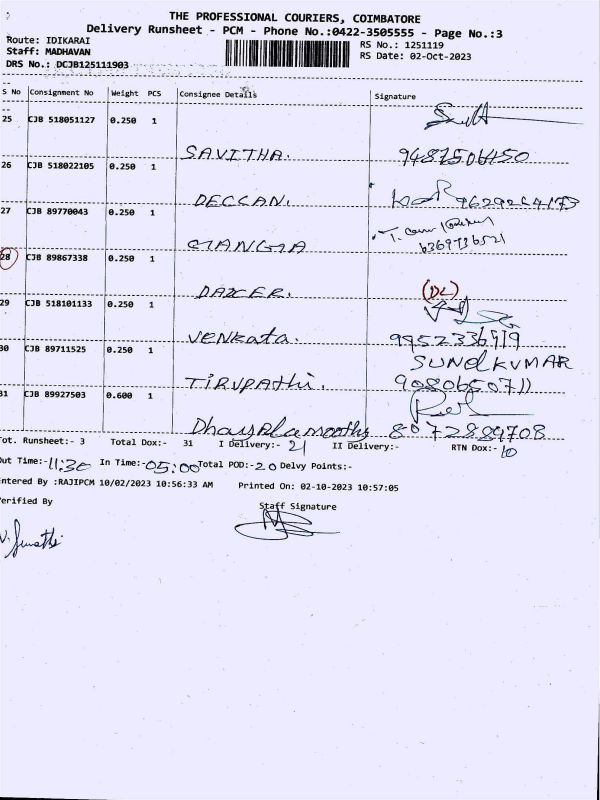 THE PROFESSIONAL COURIERS, COIMBATORE
Delivery Runsheet - PCM - Phone No.:0422-3505555 - Page No.:3
Route: IDIKARAI
RS No.: 1251119
Staff: MADHAVAN
RS Date: 02-Oct-2023
DRS No.: DCJB125111903
S No Consignment No Weight PCS Consignee Details Signature
25 CJB 518051127 0.250 1
SAVITHA. 9487506450
26 CJB 518022105 0.250 1
DECCAN.
27 CJB 89770043 0.250 1
GIANGIA 6369736521
28 CJB 89867338 0.250 1
(DL)
29 CJB 518101133 0.250 1
VENKata. 9952336919
SUNdKVMAR
30 CJB 89711525 0.250 1
TIRUPAthi. 9080650711
31 CJB 89927503 0.600 1
8072889708
Tot. Runsheet:- 3 Total Dox:- 31 I Delivery:- 21 II Delivery:- RTN Dox:- 10
Out Time:-11:30 In Time:-05:00 Total POD:-20 Delvy Points:-
Entered By :RAJIPCM 10/02/2023 10:56:33 AM Printed On: 02-10-2023 10:57:05
Verified By
Staff Signature